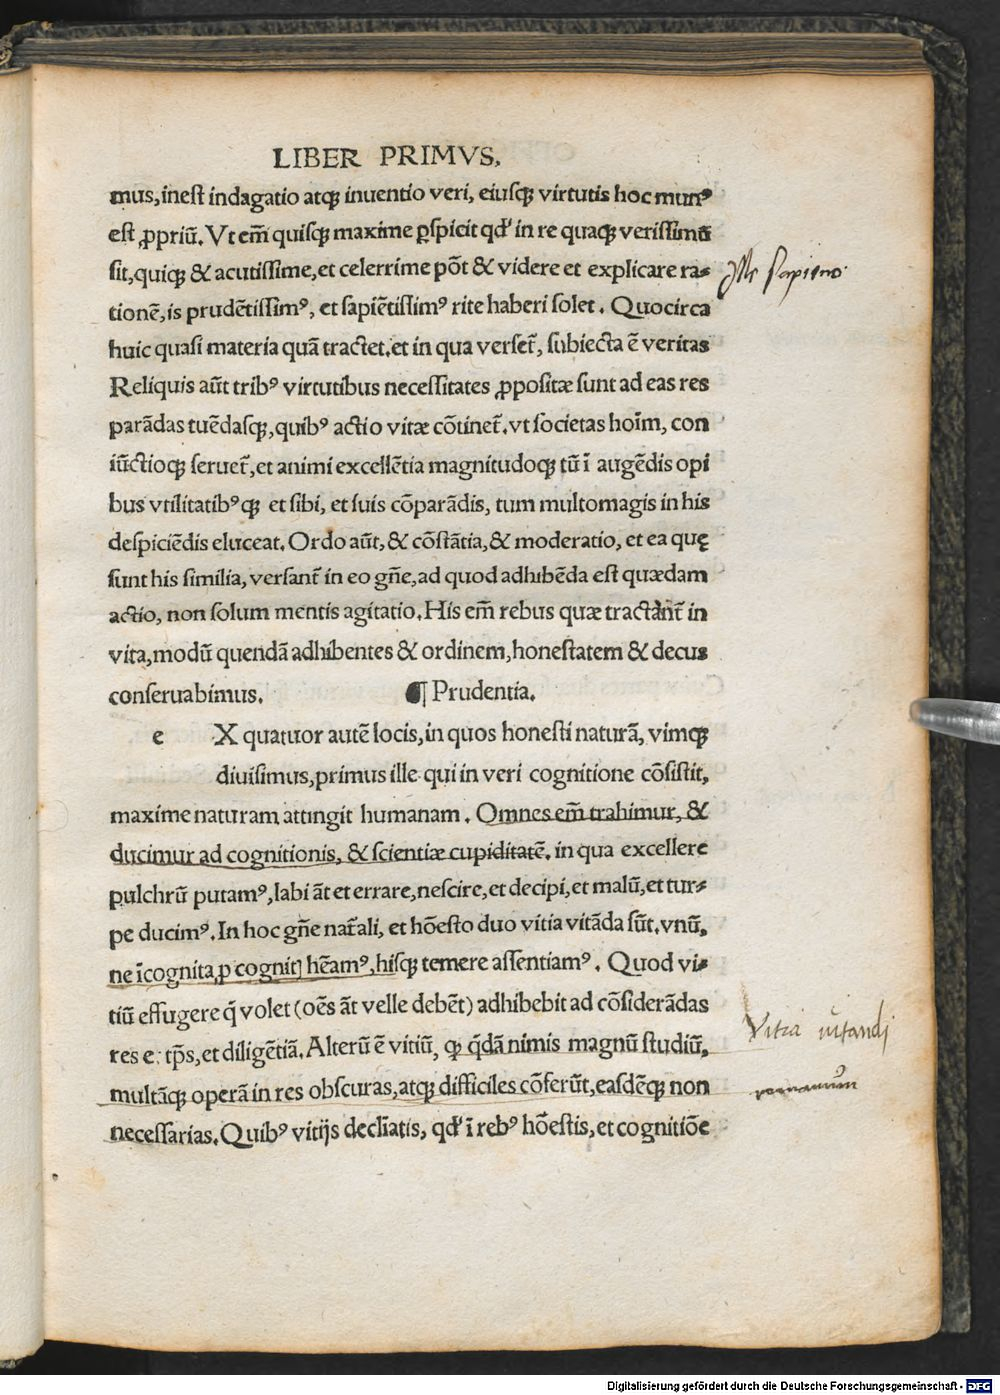 LIBER PRIMVS,
mus, inest indagatio atqꝫ inuentio veri, eiusqꝫ virtutis hoc munꝰ
est ꝓpriū. Vt em̄ quisqꝫ maxime ꝑspicit qđ in re quaqꝫ verissimū
sit, quiqꝫ & acutissime, et celerrime pōt & videre et explicare ra-
tionē, is prudētissimꝰ, et sapiētissimꝰ rite haberi solet. Quocirca
huic quasi materia quā tractet. et in qua verset̄, subiecta ē veritas
Reliquis aūt tribꝰ virtutibus necessitates ꝓpositæ sunt ad eas res
parādas tuēdasqꝫ, quibꝰ actio vitæ cōtinet̄. vt societas hoīm, con
iūctioqꝫ seruet̄, et animi excellētia magnitudoqꝫ tū ī augēdis opi
bus vtilitatibꝰqꝫ et sibi, et suis cōparādis, tum multomagis in his
despiciēdis eluceat. Ordo aūt, & cōstātia, & moderatio, et ea quę
sunt his similia, versant̄ in eo gn̄e, ad quod adhibēda est quædam
actio, non solum mentis agitatio. His em̄ rebus quæ tractānt̄ in
vita, modū quendā adhibentes & ordinem, honestatem & decus
conseruabimus. ¶ Prudentia.
e X quatuor autē locis, in quos honesti naturā, vimqꝫ
diuisimus, primus ille qui in veri cognitione cōsistit,
maxime naturam attingit humanam. Omnes em̄ trahimur, &
ducimur ad cognitionis, & scientiæ cupiditatē. in qua excellere
pulchrū putamꝰ, labi āt et errare, nescire, et decipi, et malū, et tur-
pe ducimꝰ. In hoc gn̄e nat̄ali, et hōesto duo vitia vitāda sūt. vnū,
ne īcognita ꝓ cognitꝭ hēamꝰ, hisqꝫ temere assentiamꝰ. Quod vi-
tiū effugere q̄ volet (oēs āt velle debēt) adhibebit ad cōsiderādas
res e: tp̄s, et diligētiā. Alterū ē vitiū, ꝙ q̄dā nimis magnū studiū,
multāqꝫ operā in res obscuras, atqꝫ difficiles cōferūt, easdēqꝫ non
necessarias. Quibꝰ vitijs declīatis, qđ ī rebꝰ hōestis, et cognitiōe
Vitia uitandi
Digitalisierung gefördert durch die Deutsche Forschungsgemeinschaft - DFG